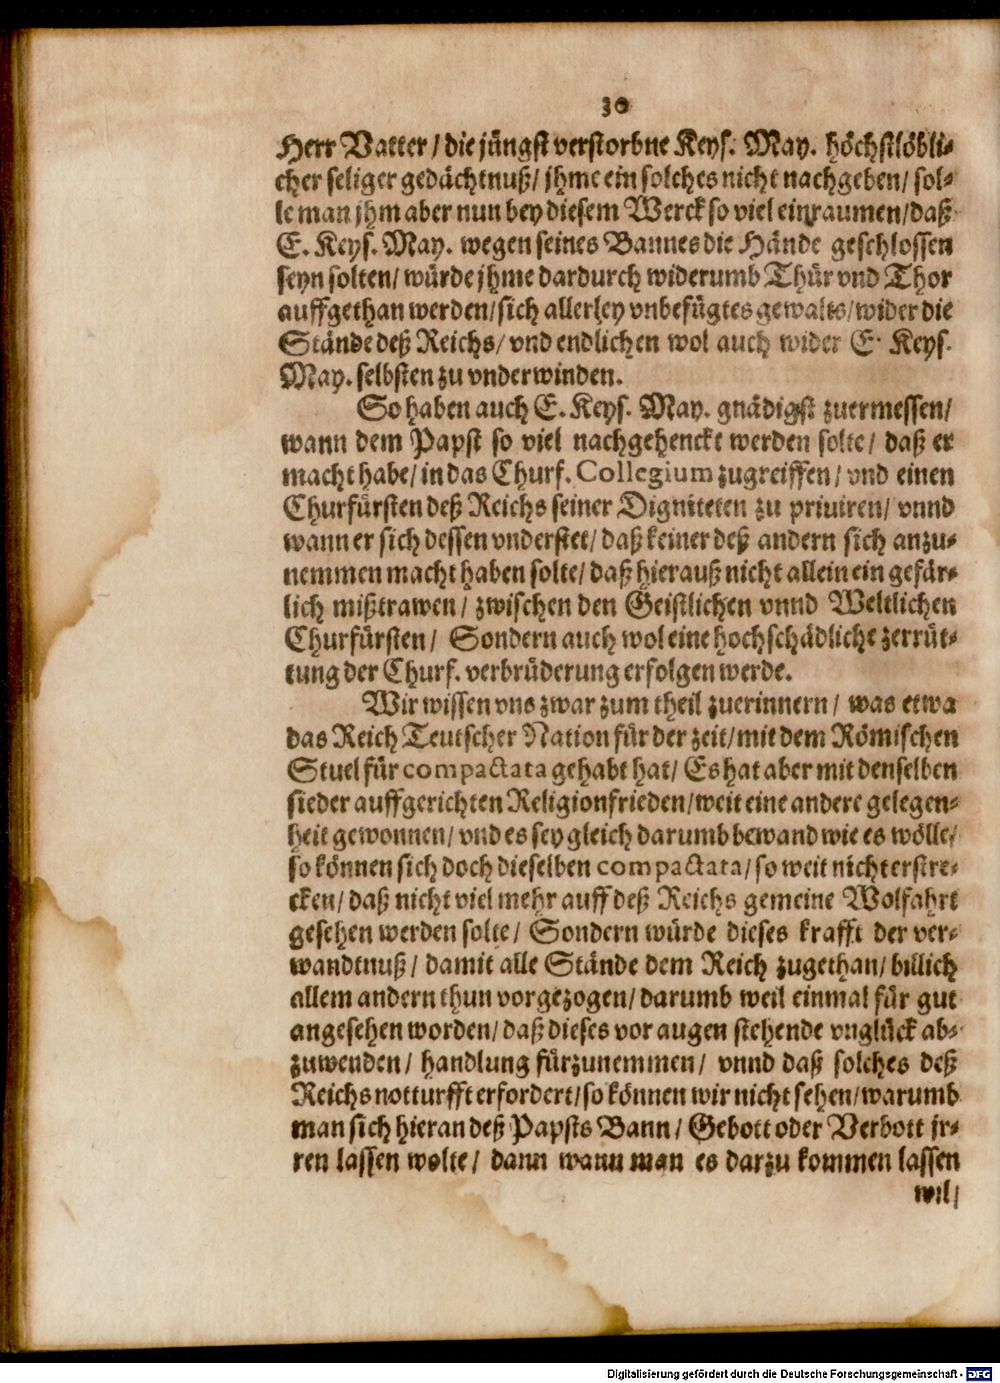 30
Herr Vatter / die jüngst verstorbne Keys. May. höchstlöbli-
cher seliger gedächtnuß / jhme ein solches nicht nachgeben / sol-
le man jhm aber nun bey diesem Werck so viel einraumen / daß
E. Keys. May. wegen seines Bannes die Hände geschlossen
seyn solten / würde jhme dardurch widerumb Thür vnd Thor
auffgethan werden / sich allerley vnbefügtes gewalts / wider die
Stände deß Reichs / vnd endlichen wol auch wider E. Keys.
May. selbsten zu vnderwinden.
So haben auch E. Keys. May. gnädigst zuermessen /
wann dem Papst so viel nachgehenckt werden solte / daß er
macht habe / in das Churf. Collegium zugreiffen / vnd einen
Churfürsten deß Reichs seiner Digniteten zu priuiren / vnnd
wann er sich dessen vnderstet / daß keiner deß andern sich anzu-
nemmen macht haben solte / daß hierauß nicht allein ein gefär-
lich mißtrawen / zwischen den Geistlichen vnnd Weltlichen
Churfürsten / Sondern auch wol eine hochschädliche zerrüt-
tung der Churf. verbrüderung erfolgen werde.
Wir wissen vns zwar zum theil zuerinnern / was etwa
das Reich Teutscher Nation für der zeit / mit dem Römischen
Stuel für compactata gehabt hat / Es hat aber mit denselben
sieder auffgerichten Religionfrieden / weit eine andere gelegen-
heit gewonnen / vnd es sey gleich darumb bewand wie es wölle /
so können sich doch dieselben compactata / so weit nicht erstre-
cken / daß nicht viel mehr auff deß Reichs gemeine Wolfahrt
gesehen werden solte / Sondern würde dieses krafft der ver-
wandtnuß / damit alle Stände dem Reich zugethan / billich
allem andern thun vorgezogen / darumb weil einmal für gut
angesehen worden / daß dieses vor augen stehende vnglück ab-
zuwenden / handlung fürzunemmen / vnnd daß solches deß
Reichs notturfft erfordert / so können wir nicht sehen / warumb
man sich hieran deß Papsts Bann / Gebott oder Verbott jr-
ren lassen wolte / dann wann man es darzu kommen lassen
wil /
Digitalisierung gefördert durch die Deutsche Forschungsgemeinschaft - DFG